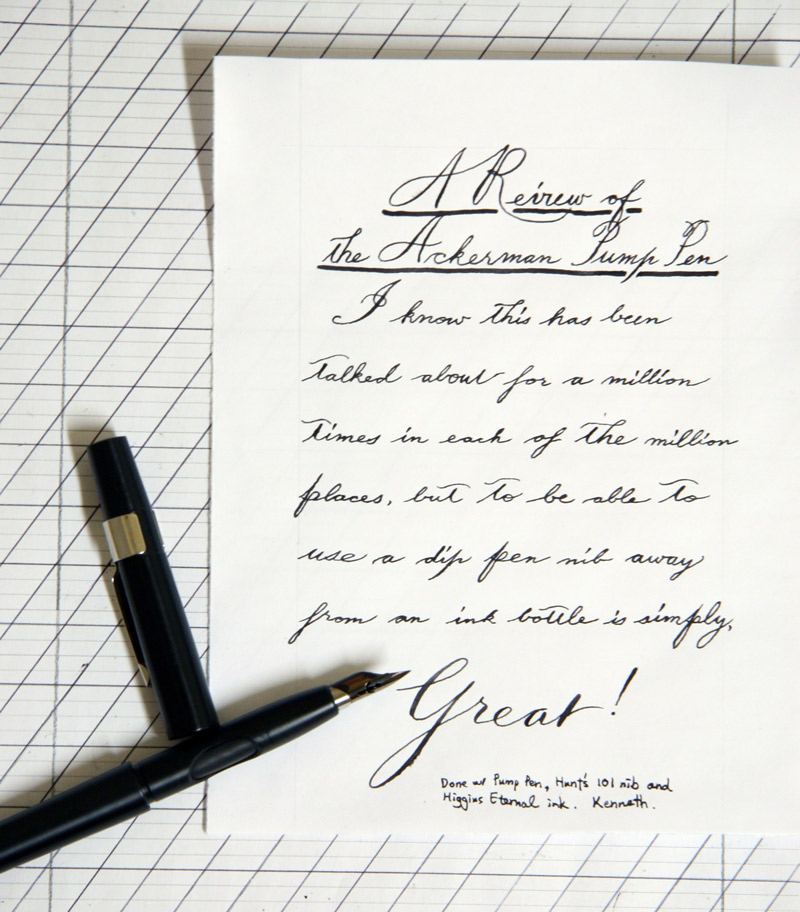 A Reivew of
the Ackerman Pump Pen
I know this has been
talked about for a million
times in each of the million
places, but to be able to
use a dip pen nib away
from an ink bottle is simply,
Great!
Done w/ Pump Pen, Hunt's 101 nib and
Higgins Eternal ink. Kenneth.